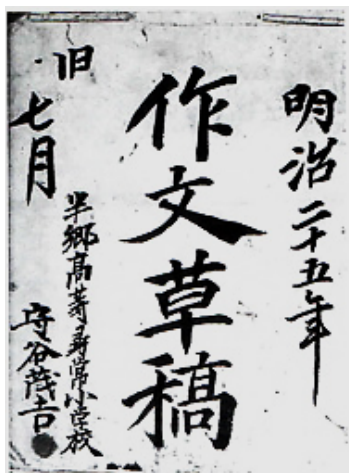 明治二十五年
作文草稿
旧
七月
半郷高等尋常小学校
守谷茂吉